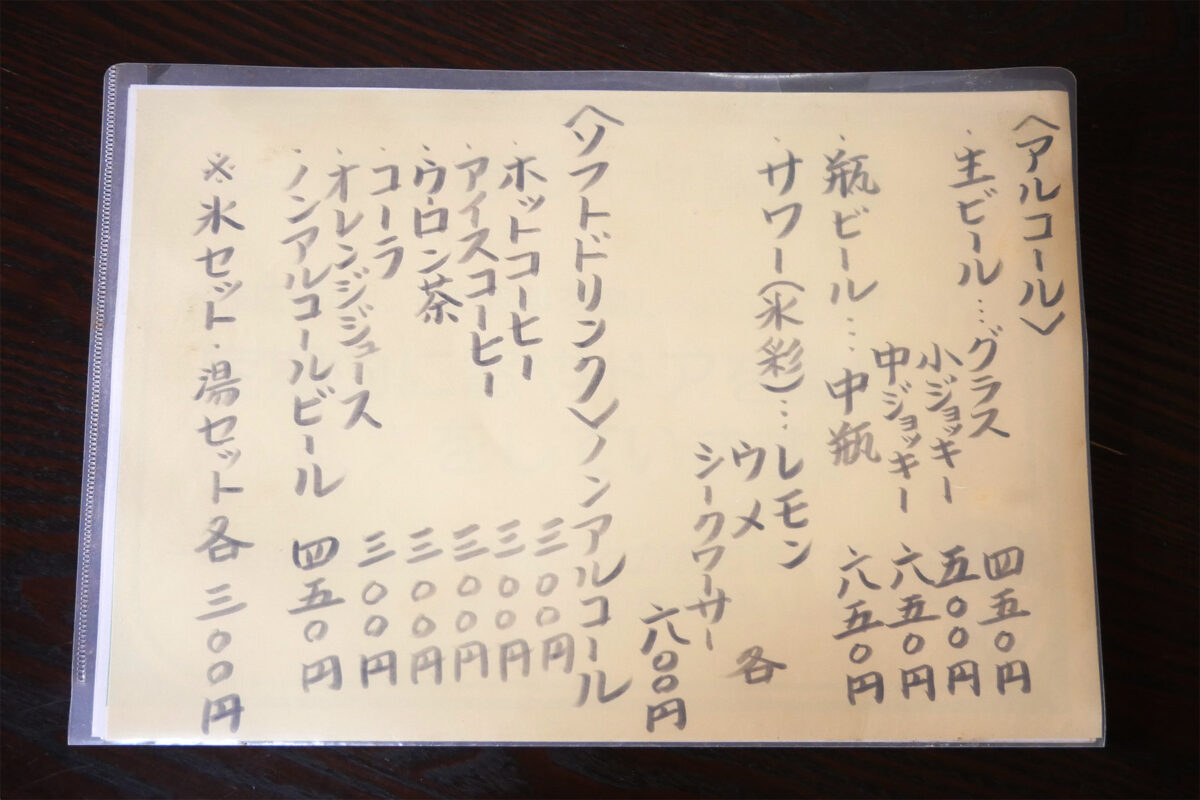 〈アルコール〉
・生ビール…グラス 四五〇円
小ジョッキー 五〇〇円
中ジョッキー 六五〇円
・瓶ビール…中瓶 六五〇円
・サワー(氷彩)…レモン
ウメ 各
シークワーサー
六〇〇円
〈ソフトドリンク〉ノンアルコール
・ホットコーヒー 三〇〇円
・アイスコーヒー 三〇〇円
・ウーロン茶 三〇〇円
・コーラ 三〇〇円
・オレンジジュース 三〇〇円
・ノンアルコールビール 四五〇円
※氷セット・湯セット各 三〇〇円